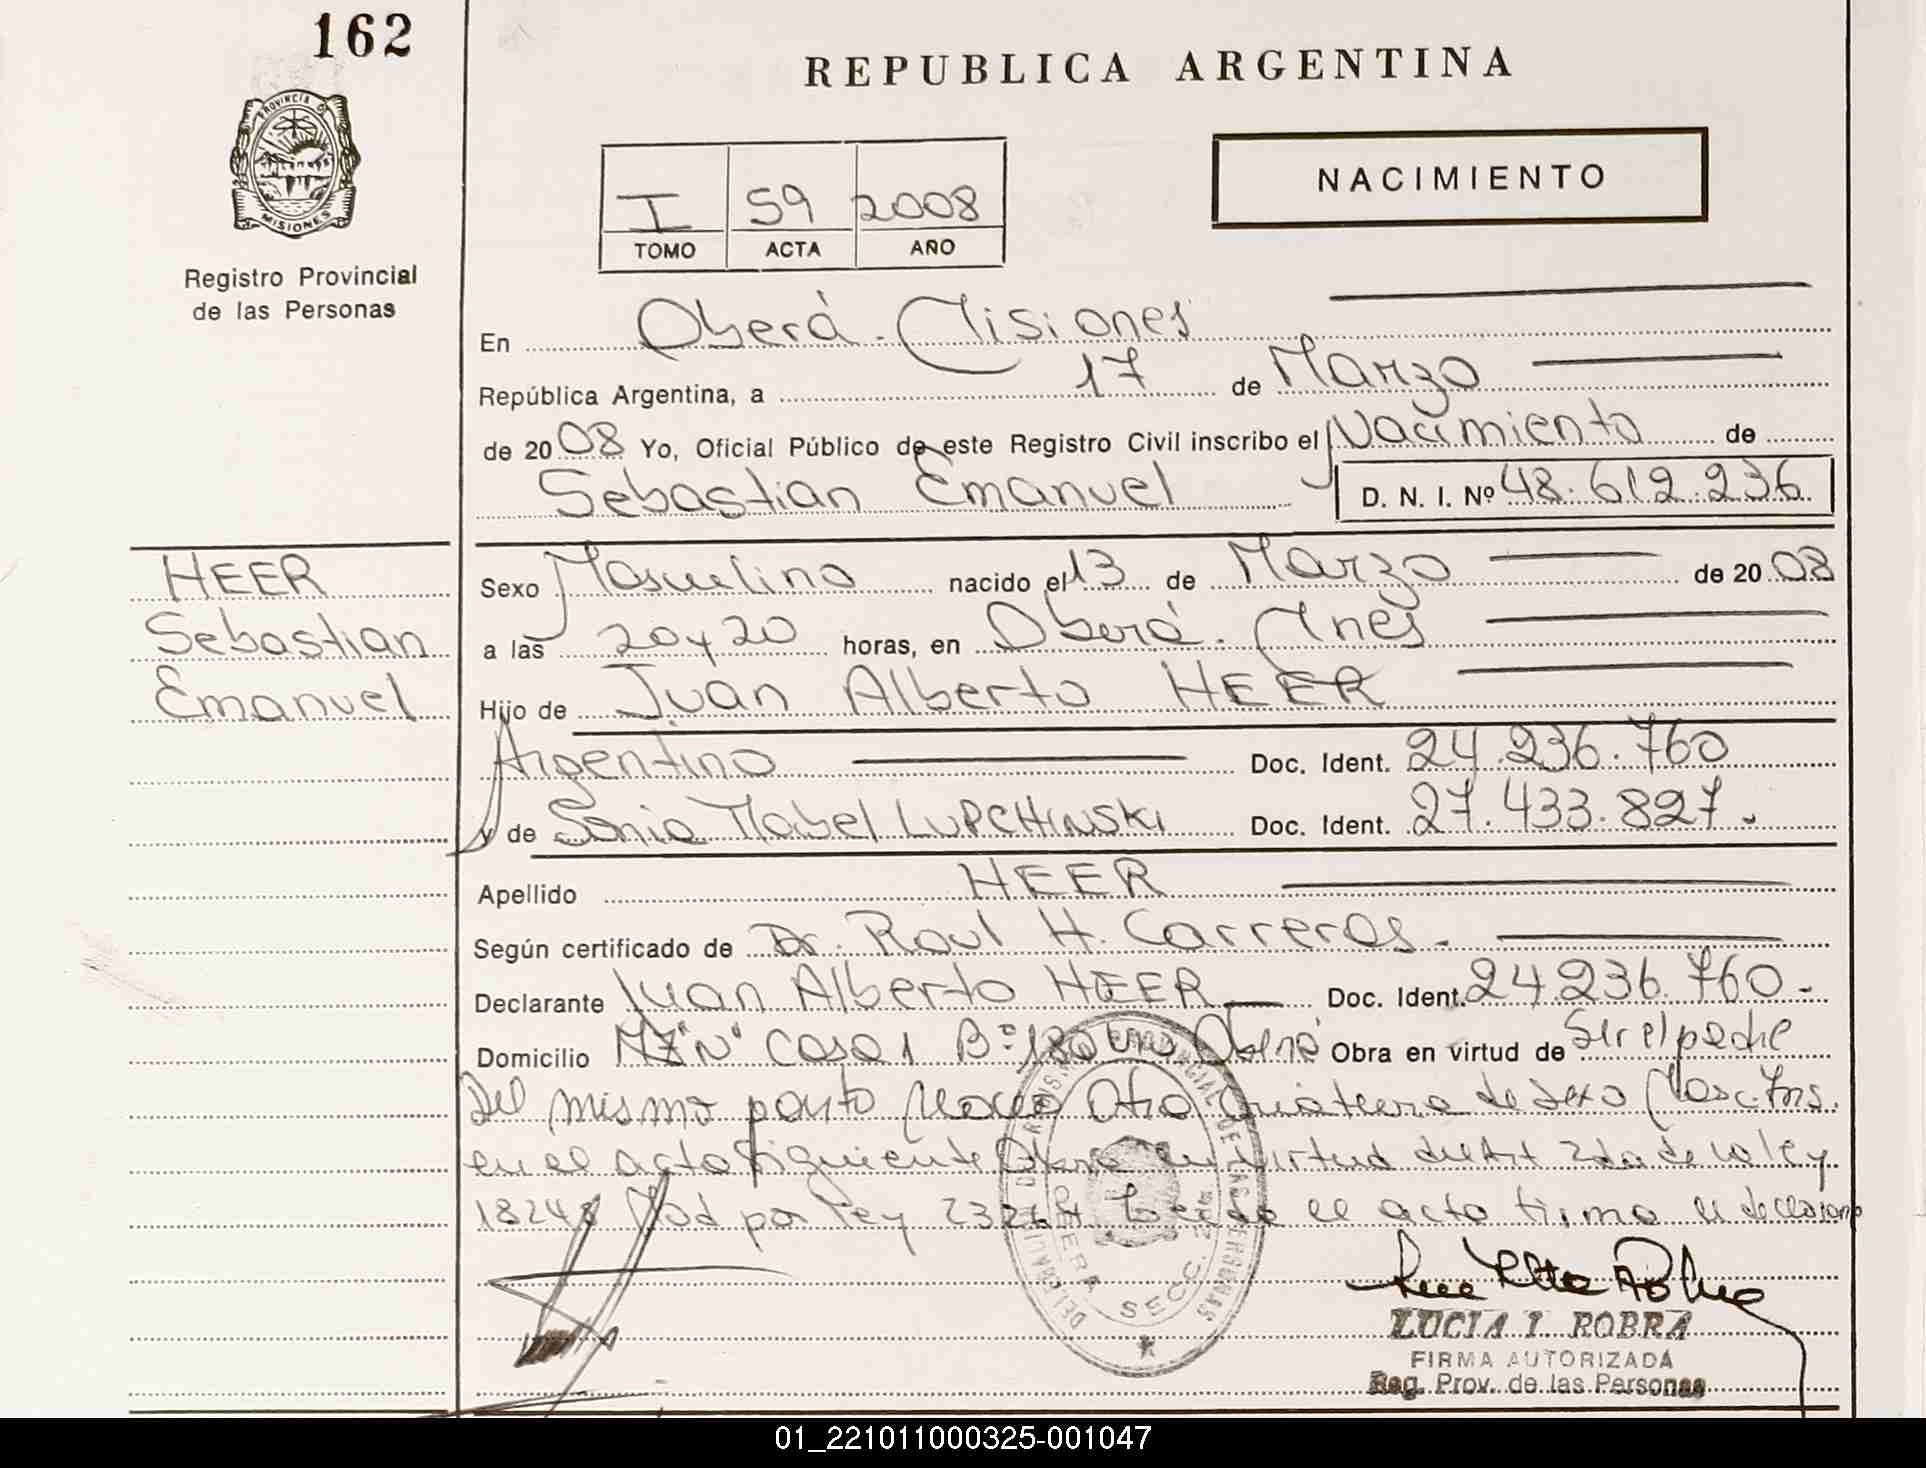 162
REPUBLICA ARGENTINA
PROVINCIA D
MISIONES
NACIMIENTO
I 59 2008
TOMO ACTA AÑO
Registro Provincial
de las Personas
En Oberá - Misiones
República Argentina, a 17 de Marzo
de 2008 Yo, Oficial Público de este Registro Civil inscribo el Nacimiento de
Sebastian Emanuel D. N. I. Nº 48.612.236
HEER
Sebastian
Emanuel
Sexo Masculino nacido el 13 de Marzo de 2008
a las 20 y 20 horas, en Oberá. Mnes
Hijo de Juan Alberto HEER
Argentino Doc. Ident. 24.236.760
y de Sonia Mabel LUPCHINSKI Doc. Ident. 27.433.827.
Apellido HEER
Según certificado de Dr. Raul H. Carreras.
Declarante Juan Alberto HEER Doc. Ident. 24.236.760.
Domicilio MZ"N" Casa 1 Bº 180 Oberá Obra en virtud de Ser el padre
Del mismo parto otra de sexo Masc. Ins.
en el acta siguiente en virtud del Art 2da de la ley
18248 Mod por ley 23264 el acta firma el declarante
PRIMERA SECC.
LUCIA I. ROBRA
FIRMA AUTORIZADA
Reg. Prov. de las Personas
01_221011000325-001047